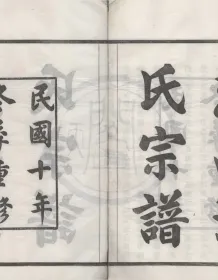 氏宗譜
民國十年
冬季重修